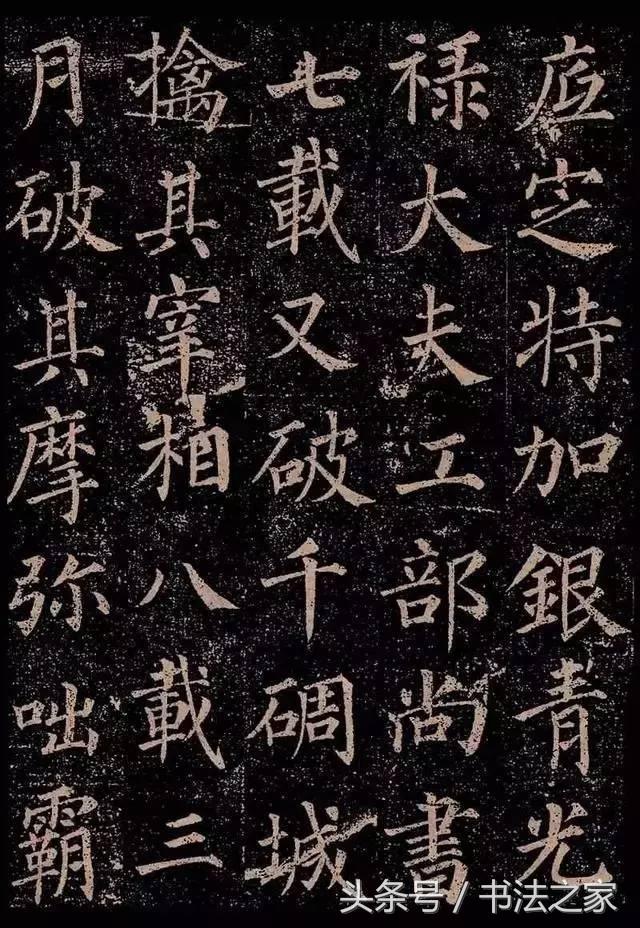 底定特加銀青光
禄大夫工部尚書
七載又破千碉城
擒其宰相八載三
月破其摩弥咄霸
头条号／书法之家